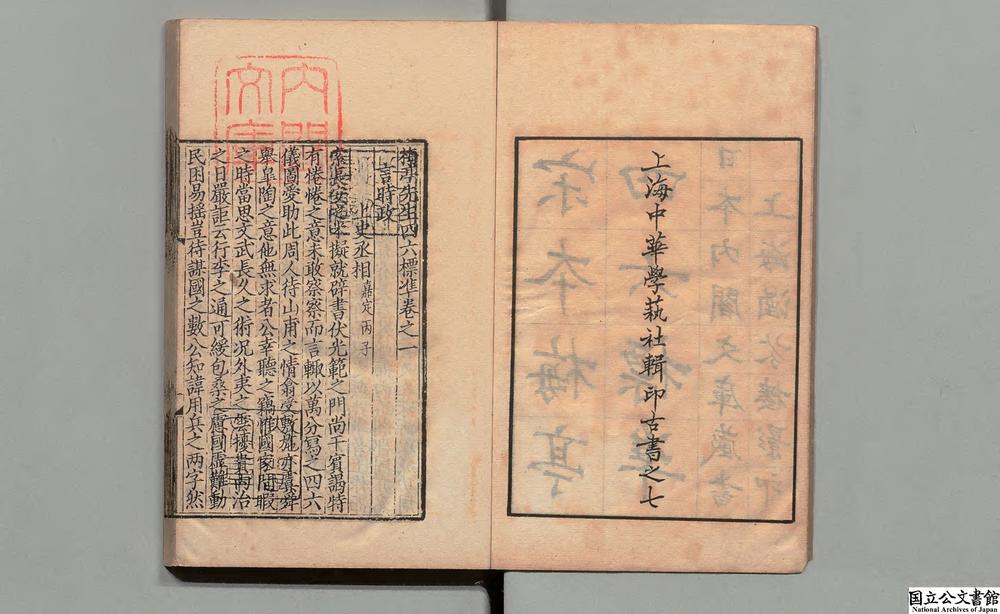 上海中華學萟社輯印古書之七
梅亭先生四六標準卷之一
言時政
上史丞相 嘉定丙子
索長安之米擬就辟書伏光範之門尚干賓謁特
有惓惓之意未敢察察而言輒以萬分寫之四六
儀圖愛助此周人待山甫之情翕受敷施亦虞舜
舉阜陶之意他無求者公幸聽之竊惟國家閒暇
之時當思文武長久之術况外夷之雲擾貴內治
之日嚴詎云行李之通可緩包桑之慮國虛難動
民困易揺豈待謀國之數公知諱用兵之兩字然
內閣文庫
国立公文書館
National Archives of Japan